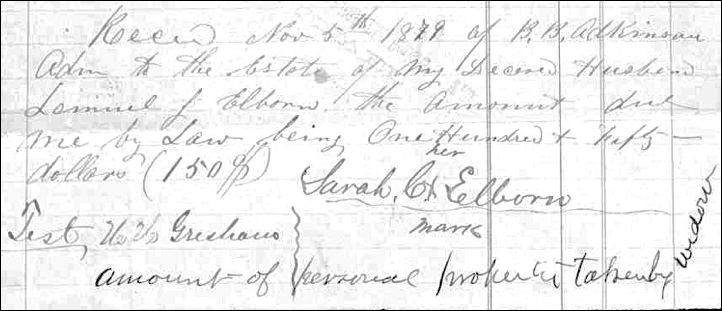 Reced Nov 5th 1879 of B. B. Adkinson
Adm to the Estate of My Deceed Husband
Lemuel J Elborn the amount due
me by Law being One Hundred & Fifty
dollars (150$)
her
Sarah. C X Elborn
mark
Test, Gresham
amount of personal property taken by
widow